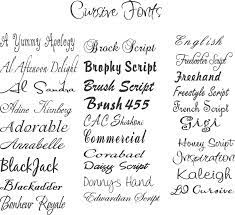 Cursive Fonts
A Yummy Apology
Al Afternoon Delight
Alison Script
Adine Kirnberg
Adorable
Annabelle
BlackJack
Blackadder
Bonheur Royale
Brock Script
Brophy Script
Brush Script
Brush 455
C.A.C. Shishoni
Commercial
Coronabad
Daizy Script
Donnys Hand
Edwardian Script
English
Freebooter Script
Freehand
Freestyle Script
French Script
Gigi
Honey Script
Inspiration
Kaleigh
LD Cursive